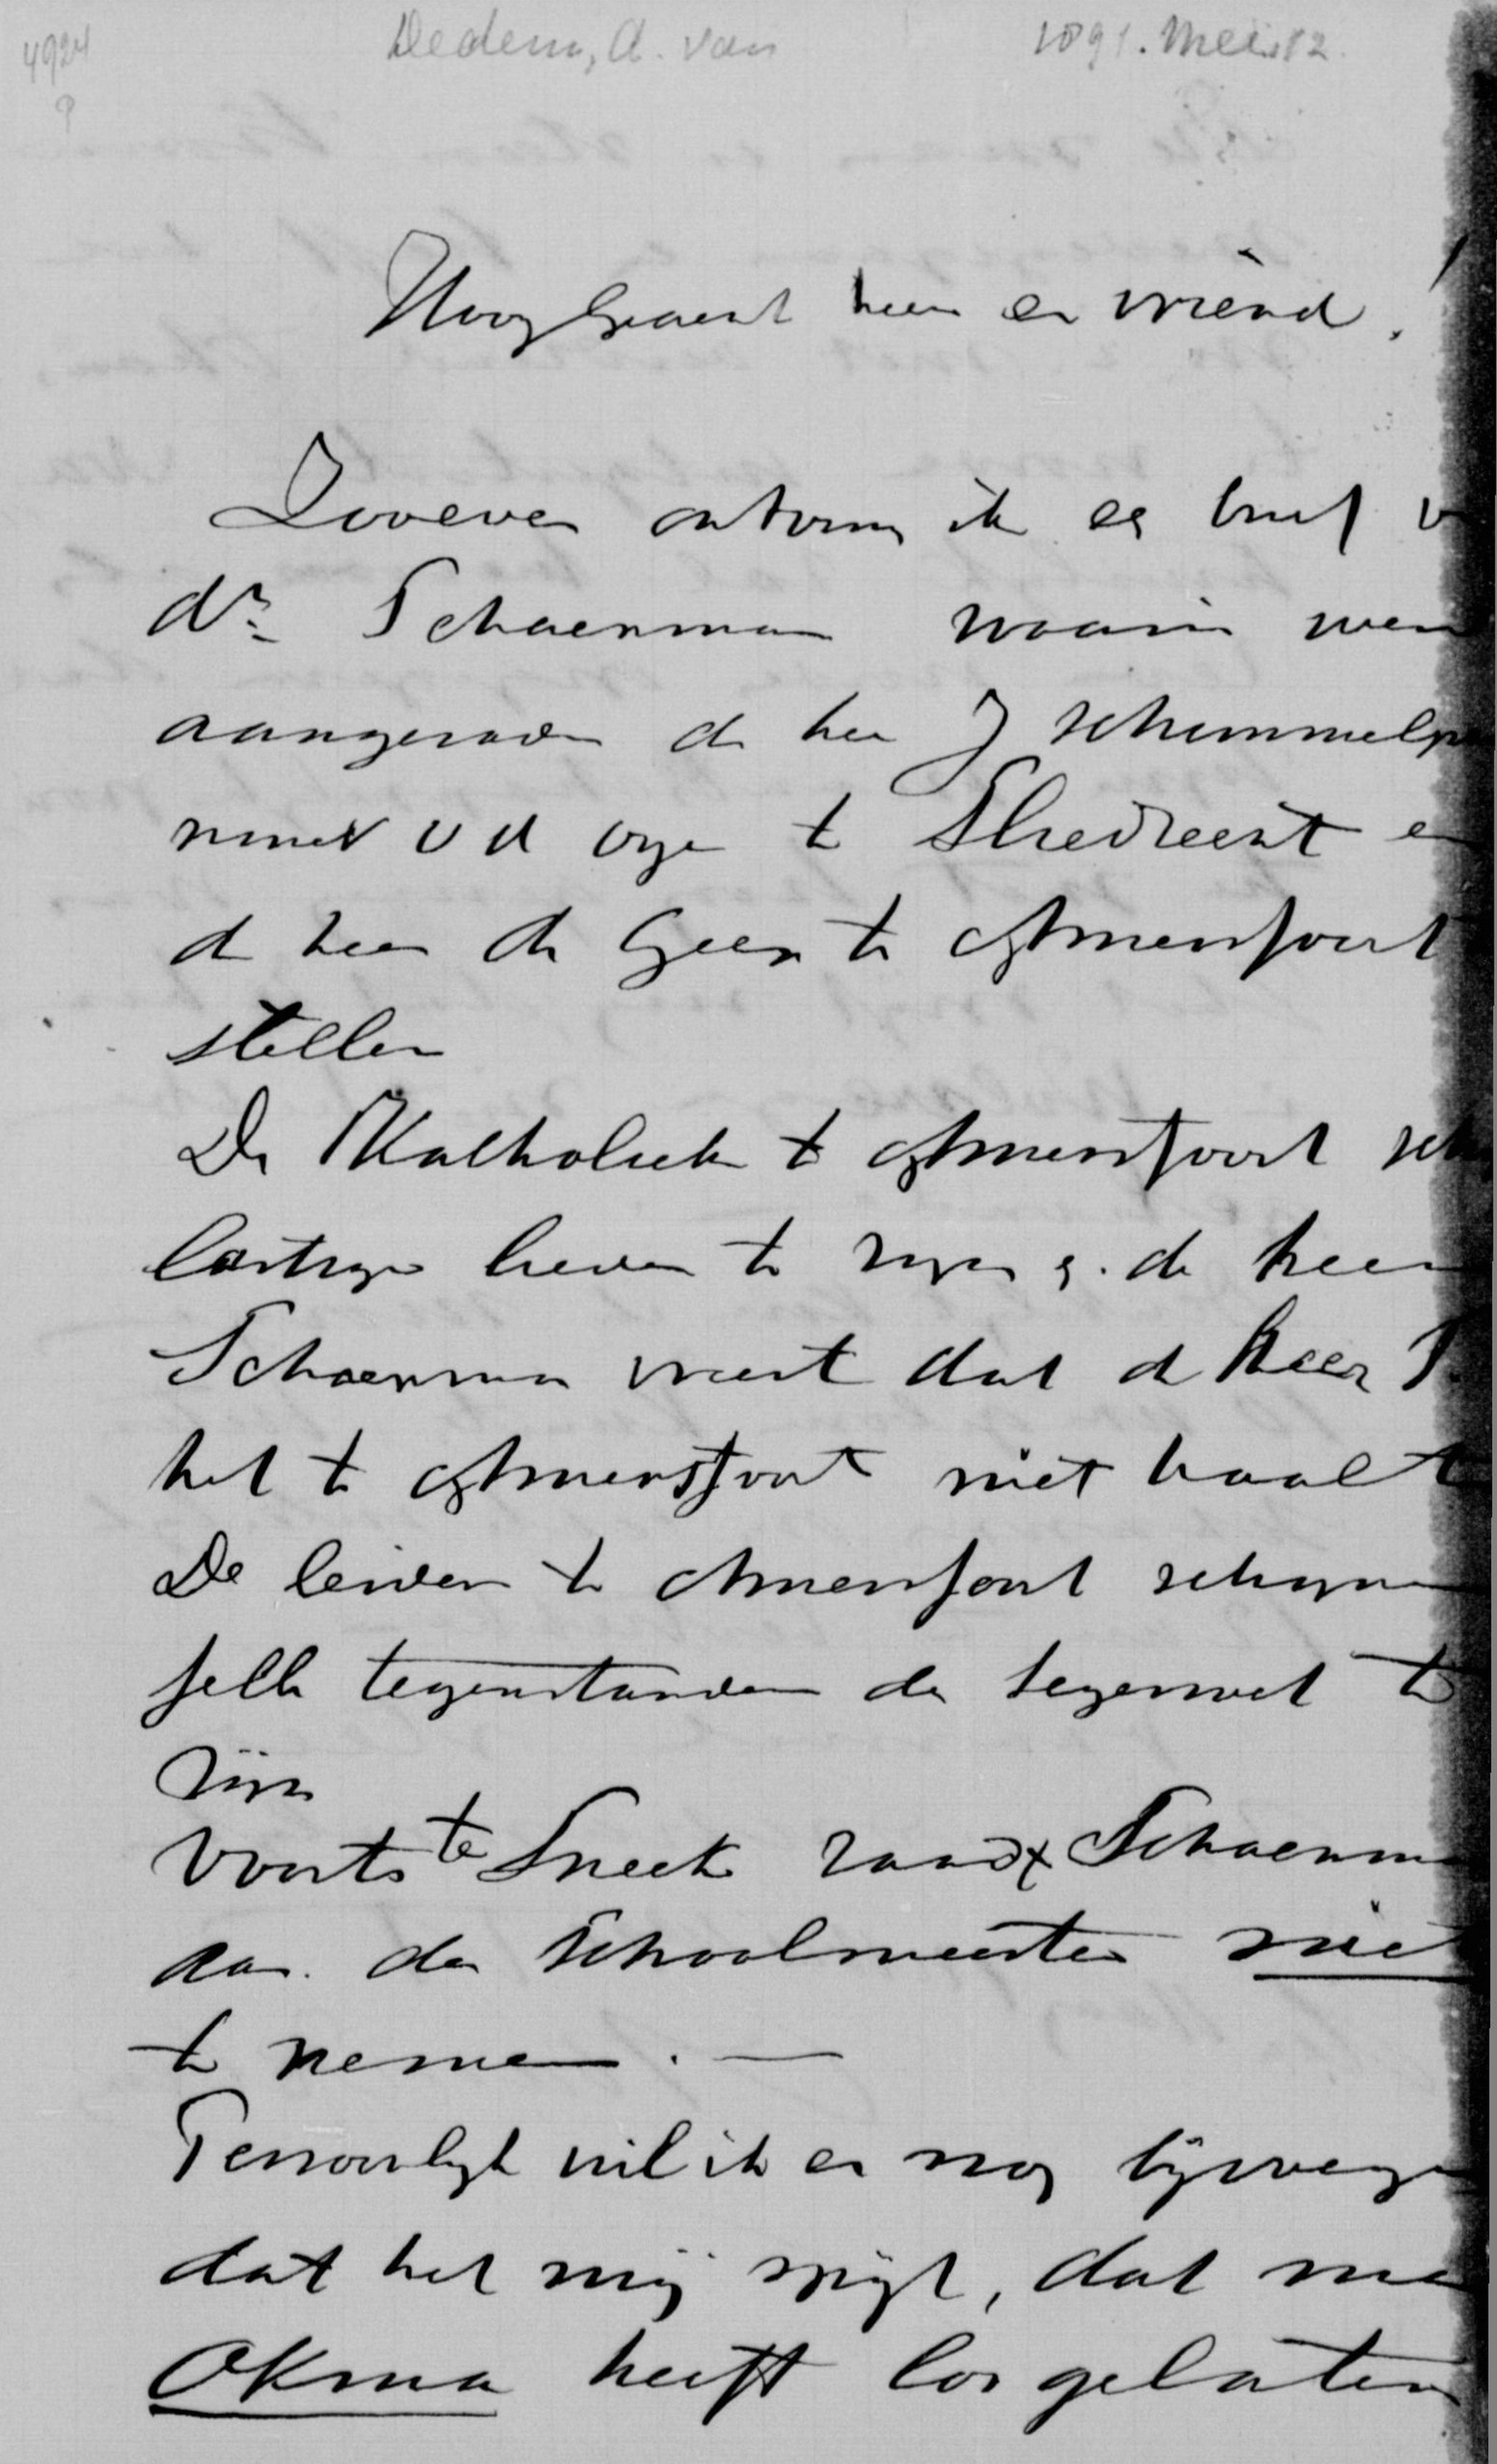 4924
Dedem, A. van
1891. Mei 12.
Hooggeacht heer en vriend!
Zooeven ontving ik een brief v
dr. Schaepman waarin wer
aangeraden de heer J Schimmelpe
ninck v d Oye te Sliedrecht en
de heer de Geer te Amersfoort
stellen
De Katholieke te Amersfoort sch
lastige lieden te zyn en de heer
Schaepman vreest dat de heer S
het te Amersfoort niet haalt
De leiders te Amersfoort schynen
felle tegenstanders der legerwet te
zijn
Voorts te Sneek raadt Schaepma
aan de Schoolmeester niet
te nemen. —
Persoonlyk wil ik er nog byvoegen
dat het mij spijt, dat me
Okma heeft losgelaten